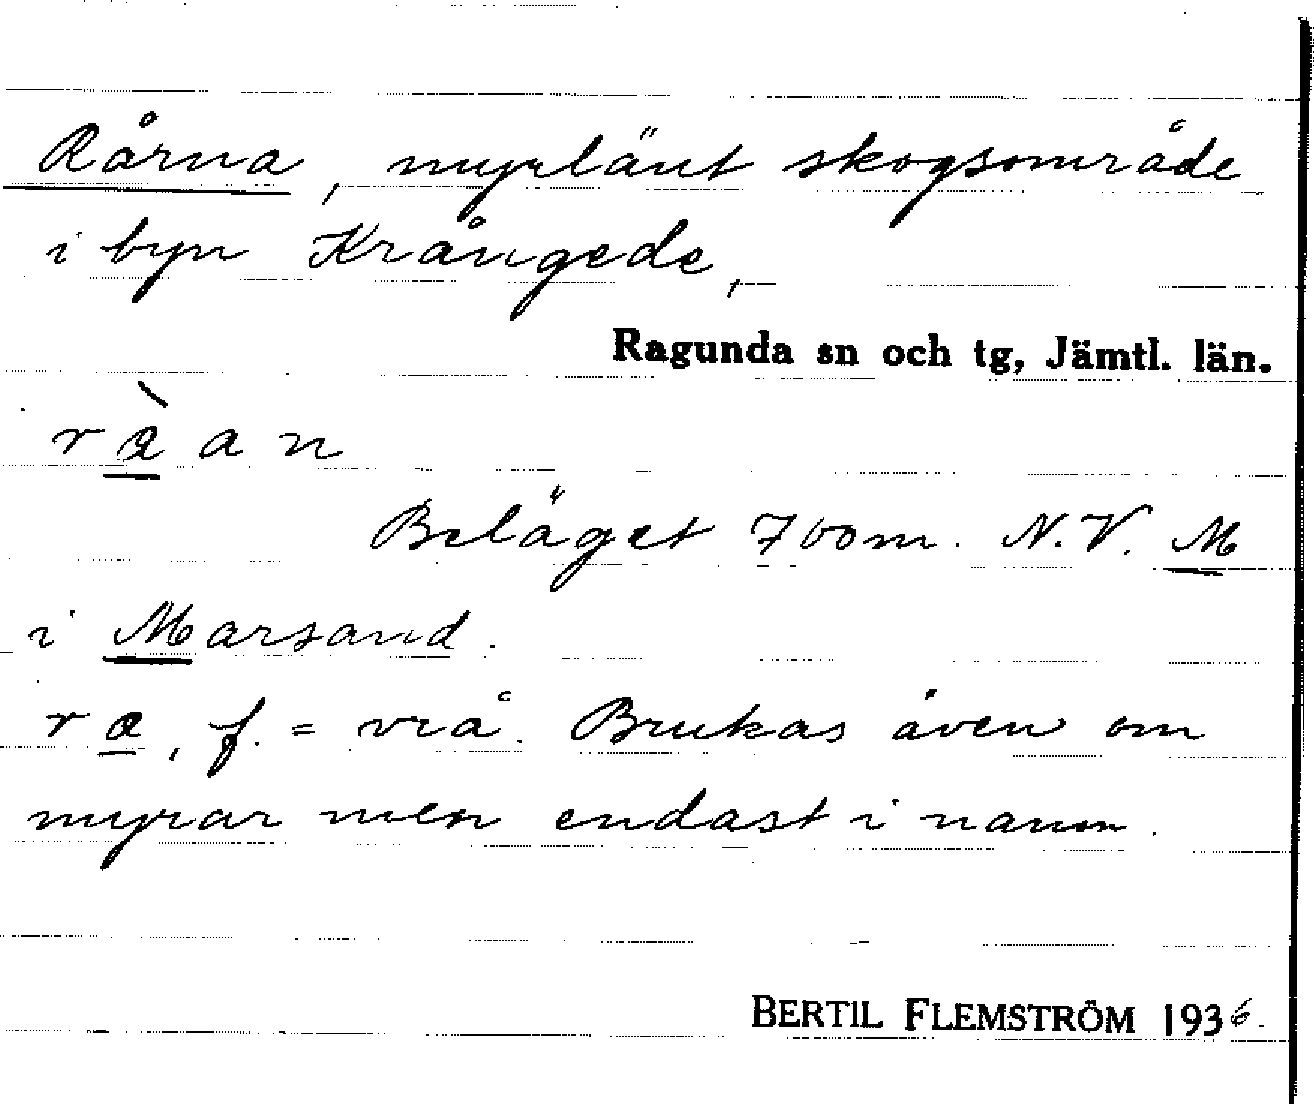 Rårna, myrlänt skogsområde
i byn Krångede,
Ragunda sn och tg, Jämtl. län.
r à a n
Beläget 700 m. N.V. M
i Marsand.
r a, f. = vrå. Brukas även om
myrar men endast i namn.
BERTIL FLEMSTRÖM 1936.